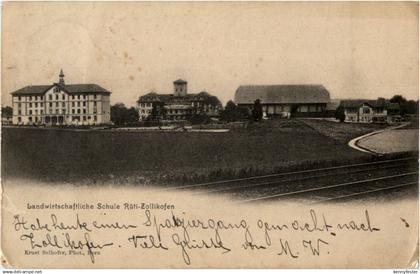 Landwirtschaftliche Schule Rüti-Zollikofen
Habe heute einen Spaziergang gemacht nach
Zollikofen. Viele Grüsse von M. W.
Ernst Selhofer, Phot., Bern
bennyfester